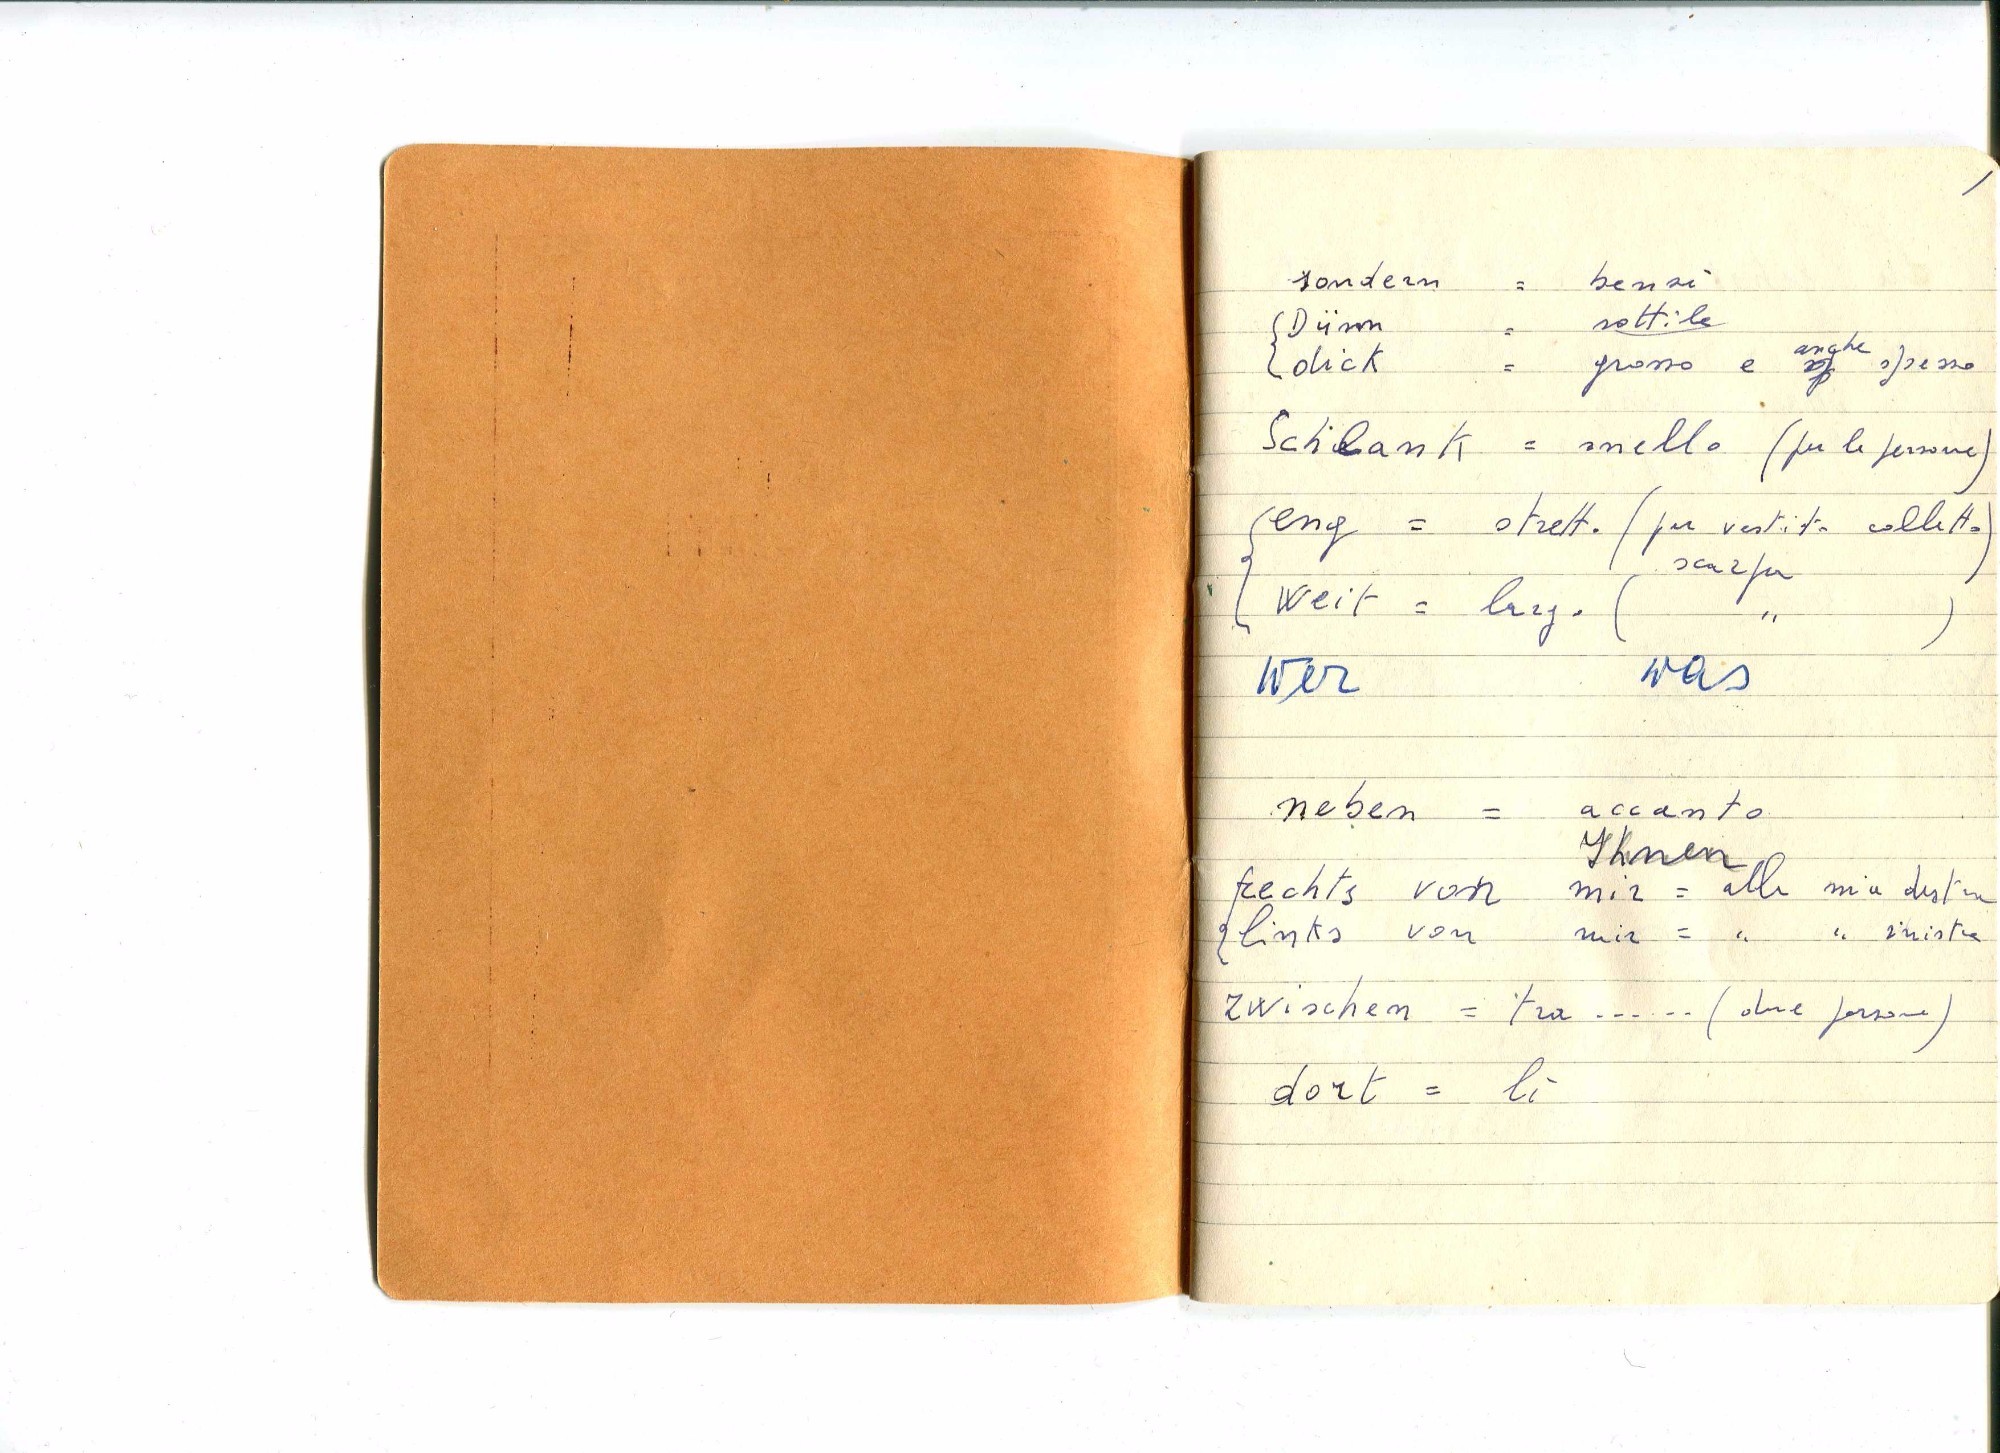 sondern = bensì
Dünn = sottile
dick = grosso e anche spesso
Schlank = snello (per le persone)
eng = stretto (per vestito colletto
scarpa)
Weit = largo ( " )
Wer was
neben = accanto
Ihnen
rechts von mir = alla mia destra
links von mir = " " sinistra
zwischen = tra ...... (due persone)
dort = lì